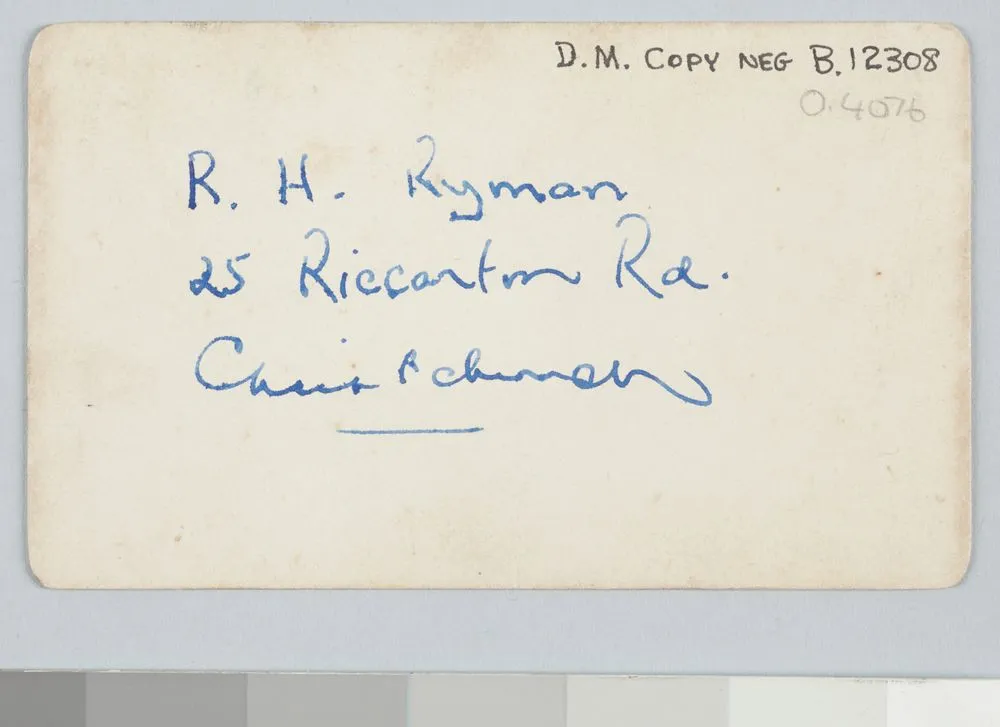 D.M. COPY NEG B.12308
O.4076
R. H. Ryman
25 Riccarton Rd.
Christchurch